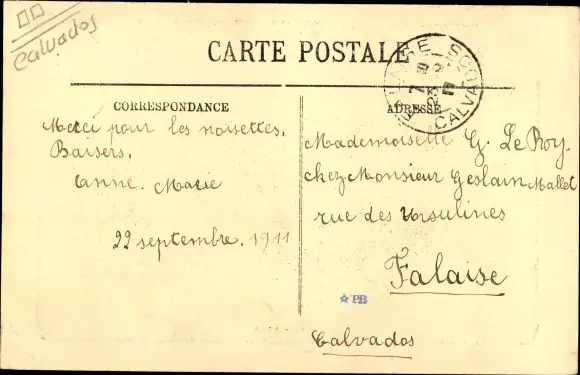 Calvados
CARTE POSTALE
CORRESPONDANCE
ADRESSE
FALAISE
CALVADOS
Merci pour les noisettes.
Baisers.
Anne. Marie
22 septembre. 1911
Mademoiselle G. Le Roy.
chez Monsieur Geslain Mallet
rue des Ursulines
Falaise
Calvados
PB